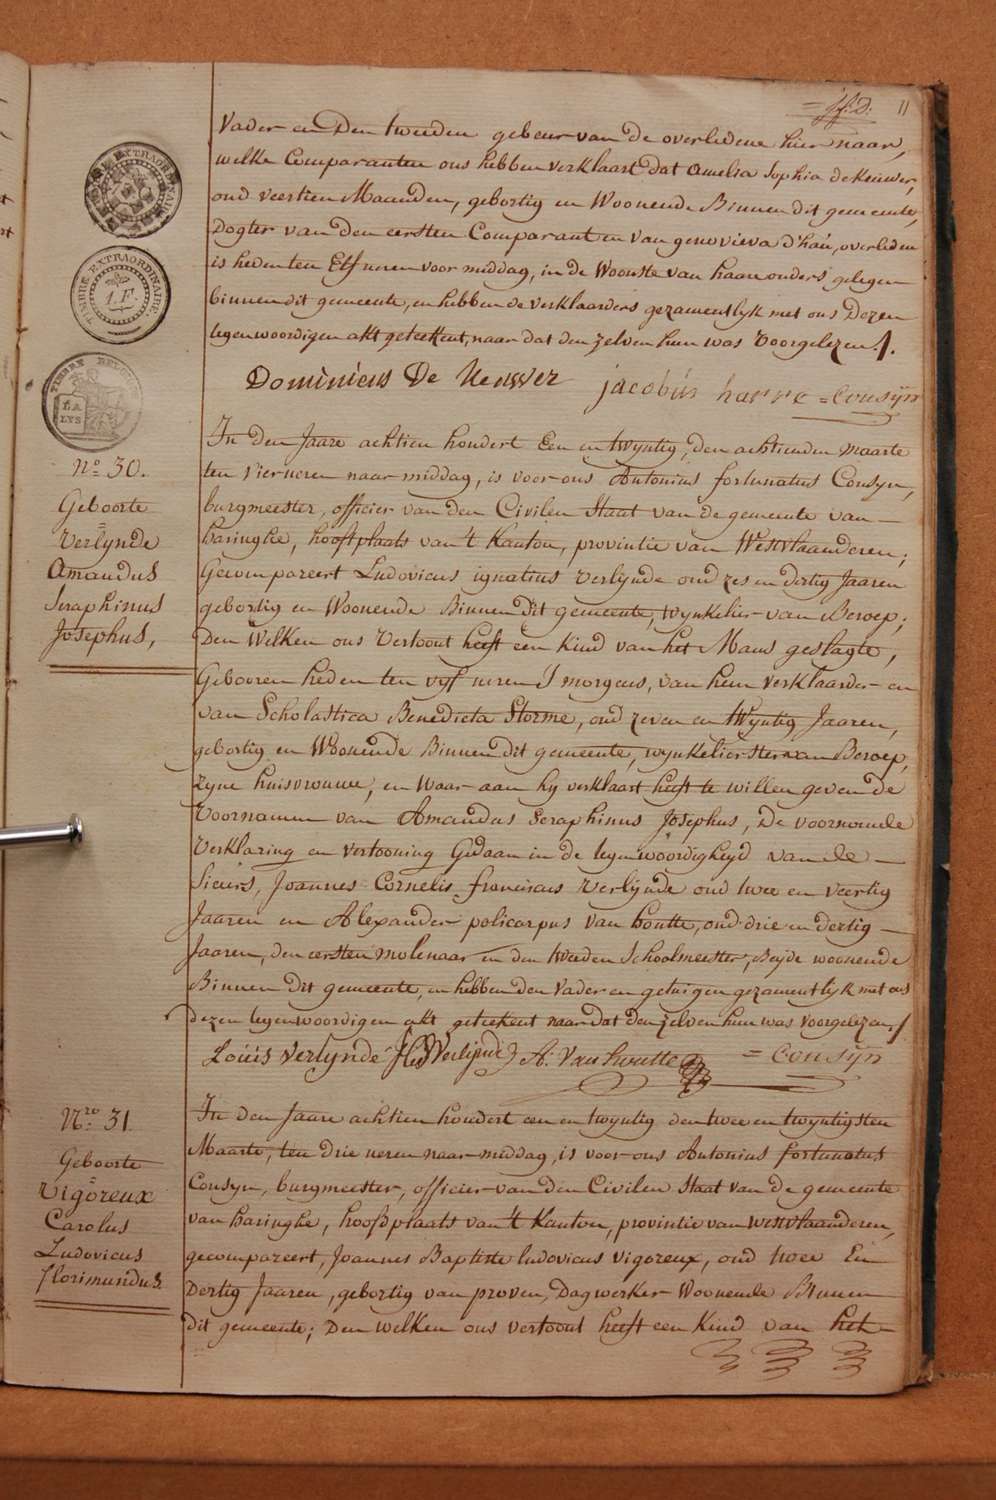 11
Vader en Den tweeden gebeur van de overledene hier naar,
welke Comparanten ons hebben verklaart dat Amelia Sophia deKeuwer,
oud veertien Maanden, gebortig en Woonende Binnen dit gemeente,
Dogter van den eersten Comparant en van genovieva d'haú, overleden
is heden ten Elf uren voor middag, in de Woonste van haare ouders gelegen
binnen dit gemeente, en hebben de verklaarders gezamentlyk met ons Dezen
tegenwoordigen akt geteekent, naar dat den zelven hun was Voorgelezen ./.
Dominicus De Keuwer jacobús harre = Cousÿn
TIMBRE EXTRAORDINAIRE
TIMBRE EXTRAORDINAIRE.
1.F.
LA
LYS
In den Jaare achtien hondert Een en twyntig, den achtienden maarte
ten Vier uren naar middag, is voor ons Antonius fortunatus Cousyn,
burgmeester, officier van den Civilen Staat van de gemeente van
haringhe, hooftplaats van 't Kanton, provintie van Westvlaanderen;
Gecompareert Ludovicus ignatius Verlynde oud zes en dertig Jaaren
gebortig en Woonende Binnen dit gemeente, Wynkelier van Beroep;
Den Welken ons Vertoont heeft een Kind van het Mans geslagte,
Gebooren heden ten vyf uren S morgens, van hem verklaarder en
van Scholastica Benedicta Storme, oud zeven en twyntig Jaaren,
gebortig en Woonende Binnen dit gemeente, wynkelierster van Beroep,
zyne huisvrouwe, en Waar aan hy verklaart heeft te willen geven de
Voornamen van Amandus Seraphinus Josephus, De voornoemde
Verklaring en vertooning Gedaan in de tegenwoordigheyd van de
Sieurs, Joannes Cornelis franciscus Verlynde oud twee en veertig
Jaaren en Alexander policarpus van houtte, oud drie en dertig
Jaaren, den eersten molenaar en den tweeden Schoolmeester, Beyde woonende
Binnen dit gemeente, en hebben den Vader en getuigen gezamentlyk met ons
dezen tegenwoordigen akt geteekent naar dat den zelven hun was voorgelezen ./
Loúis verlynde Verlynde A. Vanhoutte = Cousÿn
N° 30.
Geboorte
=
Verlynde
Amandus
Seraphinus
Josephus,
In den Jaare achtien hondert een en twyntig den twee en twyntigsten
Maarte, ten drie uren naar middag, is voor ons Antonius fortunatus
Cousyn, burgmeester, officier van den Civilen Staat van de gemeente
van haringhe, hooftplaats van 't Kanton, provintie van westvlaanderen,
gecompareert, Joannes Baptiste ludovicus vigoreux, oud twee En
Dertig Jaaren, gebortig van proven, Dagwerker Woonende Binnen
dit gemeente; Den welken ons vertoont heeft een Kind van het
Nro. 31.
Geboorte
=
Vigoreux
Carolus
Ludovicus
florimundus